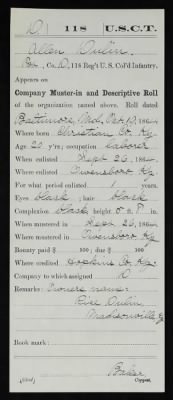 D | 118 | U.S.C.T.
Allen Dulin
Pvt., Co. D, 118 Reg't U. S. Col'd Infantry.
Appears on
Company Muster-in and Descriptive Roll
of the organization named above. Roll dated
Baltimore, Md, Oct 10, 1864
Where born Christian Co. Ky
Age 20 y'rs; occupation laborer
When enlisted Sept 26, 1864
Where enlisted Owensboro Ky
For what period enlisted 1 years.
Eyes black; hair black
Complexion black; height 5 ft. 8 in.
When mustered in Sept 26, 1864
Where mustered in Owensboro Ky
Bounty paid $ 100; due $ 100
Where credited Hopkins Co. Ky.
Company to which assigned D
Remarks: Owners name:
Rice Dulin
Madisonville Ky
Book mark:
Baker
Copyist.